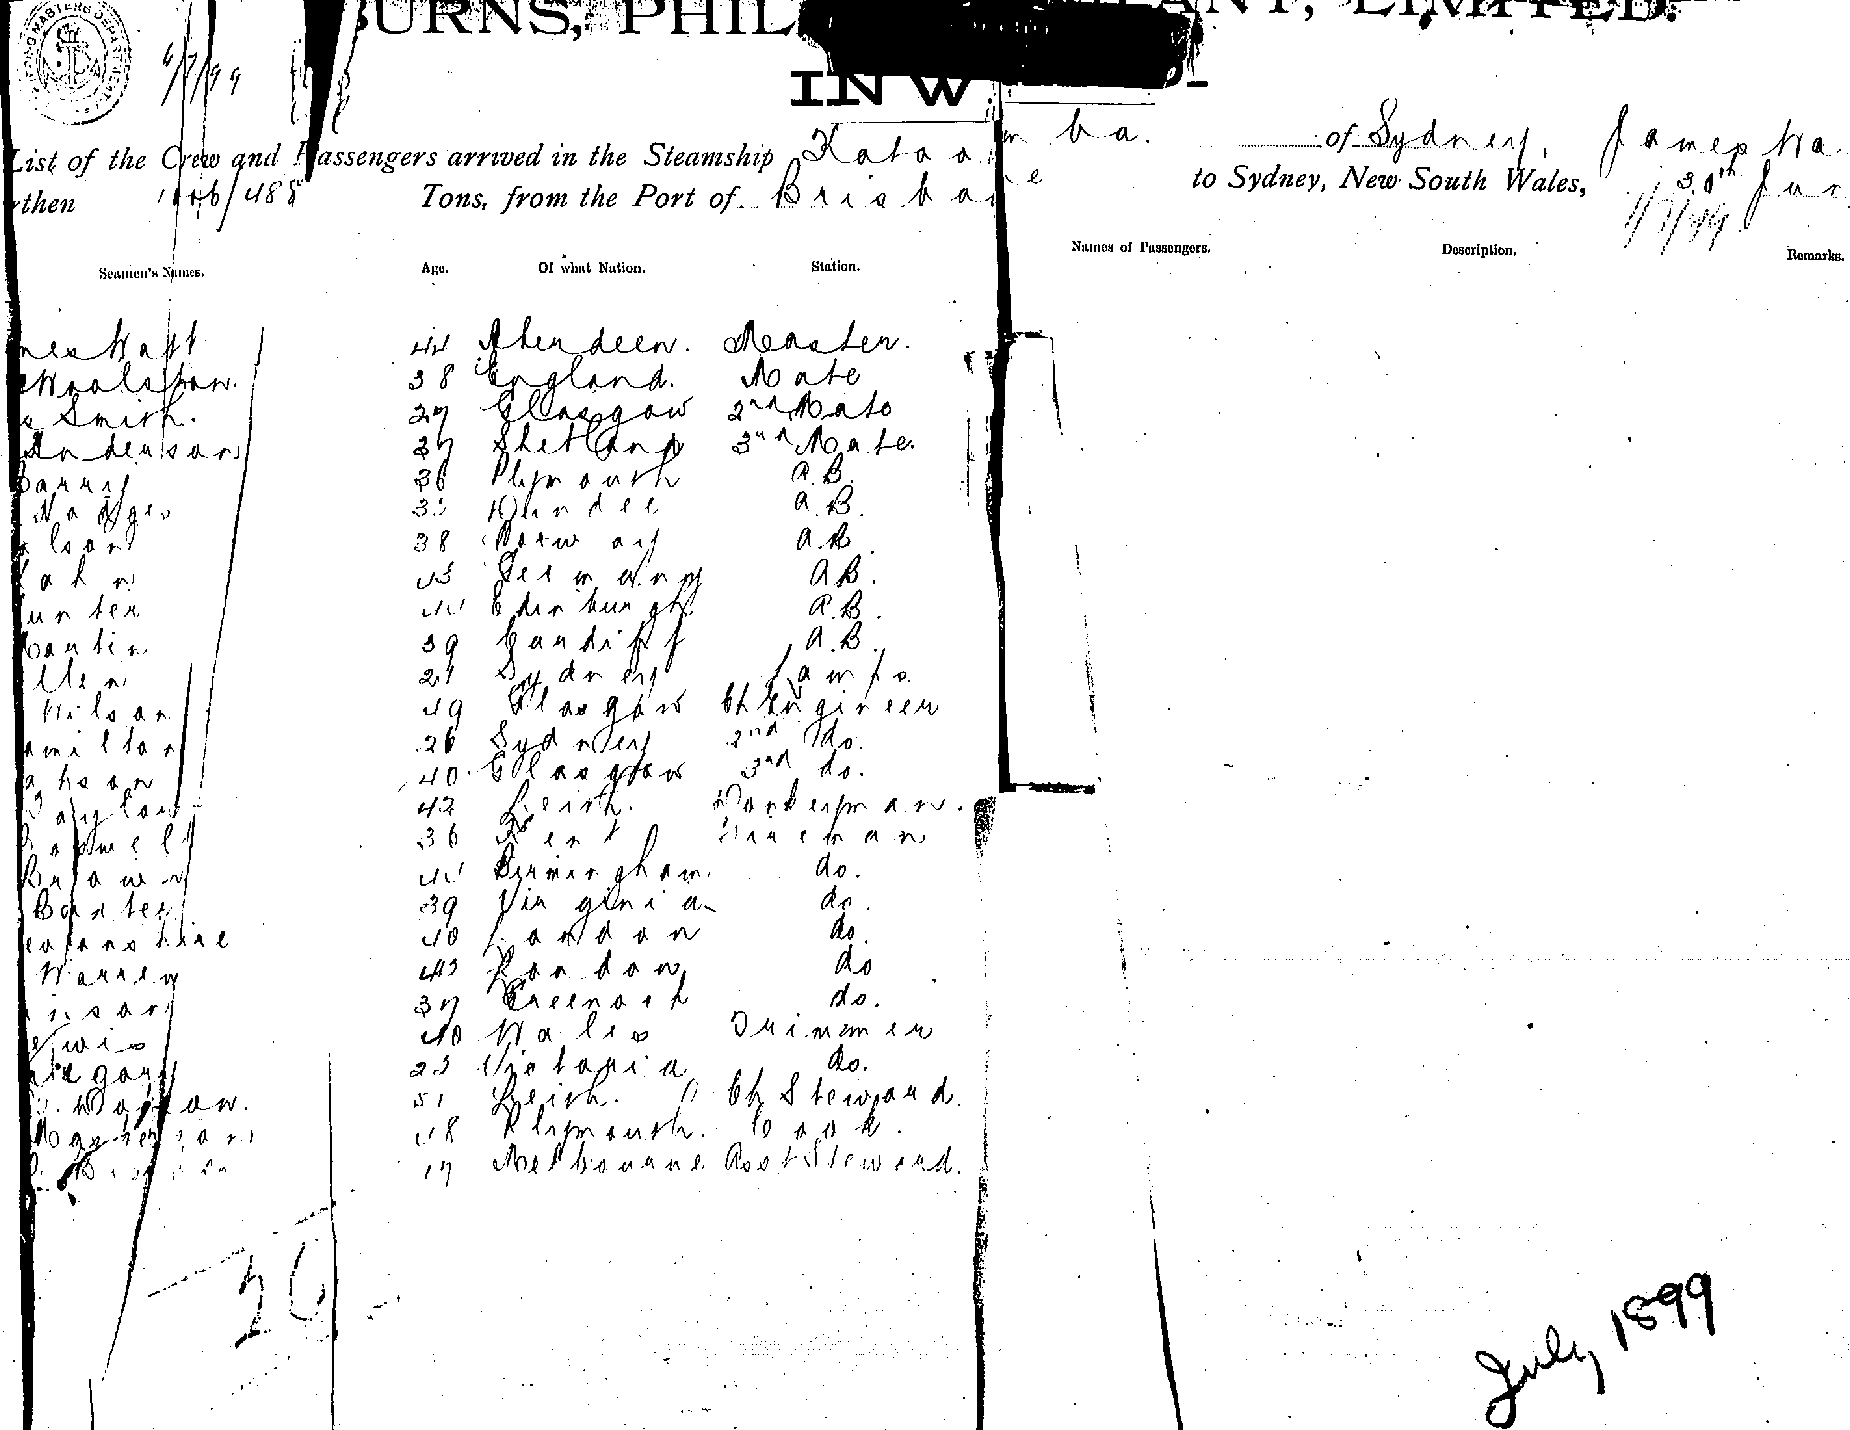 BURNS, PHIL ANY, LIMITED.
6/7/99
IN W D-
List of the Crew and Passengers arrived in the Steamship Katoomba. of Sydney, James Wa
rthen 1006/488 Tons, from the Port of Brisbane to Sydney, New South Wales, 30th Jun
1/7/99
Seamen's Names. Age. Of what Nation. Station. Names of Passengers. Description. Remarks.
mes Watt 44 Aberdeen. Master.
Woolston. 38 England. Mate
Smith. 27 Glasgow 2nd Mate
Anderson 37 Shetland 3rd Mate.
Barry 36 Plymouth A.B.
Hodges 33 Dundee A.B.
lson 38 Norway A.B.
ahn 43 Germany A.B.
unter 44 Edinburgh A.B.
Martin 39 Cardiff A.B.
llen 21 Sydney Lamps
Wilson 49 Glasgow Ch Engineer
amilton 26 Sydney 2nd do.
40 Glasgow 3rd do.
Taylor 42 Leith. Donkeyman.
36 Kent Fireman
Brown 44 Birmingham. do.
Baxter 39 Virginia do.
evonshire 40 London do.
Warren 43 London do
inson 37 Greenock do.
ewis 40 Wales Trimmer
regory 23 Victoria do.
51 Leith. Ch Steward.
48 Plymouth. Cook.
17 Melbourne Asst Steward.
26
July 1899